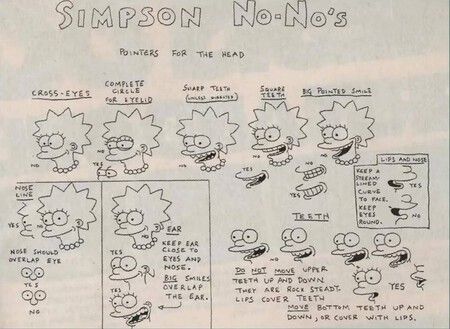 SIMPSON NO-NO'S
POINTERS FOR THE HEAD
CROSS-EYES
COMPLETE
CIRCLE
FOR EYELID
SHARP TEETH
(UNLESS DIRECTED)
SQUARE
TEETH
BIG POINTED SMILE
NO
NO
YES
NO
YES
NO
YES
NO
YES
LIPS AND NOSE
KEEP A
STREAM-
LINED
CURVE
TO FACE.
KEEP
EYES
ROUND.
YES
NO
NOSE
LINE
YES
NO
NOSE SHOULD
OVERLAP EYE
YES
NO
EAR
KEEP EAR
CLOSE TO
EYES AND
NOSE.
BIG SMILES
OVERLAP
THE EAR.
YES
YES
NO
TEETH
YES
YES
NO
DO NOT MOVE UPPER
TEETH UP AND DOWN.
THEY ARE ROCK STEADY.
LIPS COVER TEETH
MOVE BOTTOM TEETH UP AND
DOWN, OR COVER WITH LIPS.